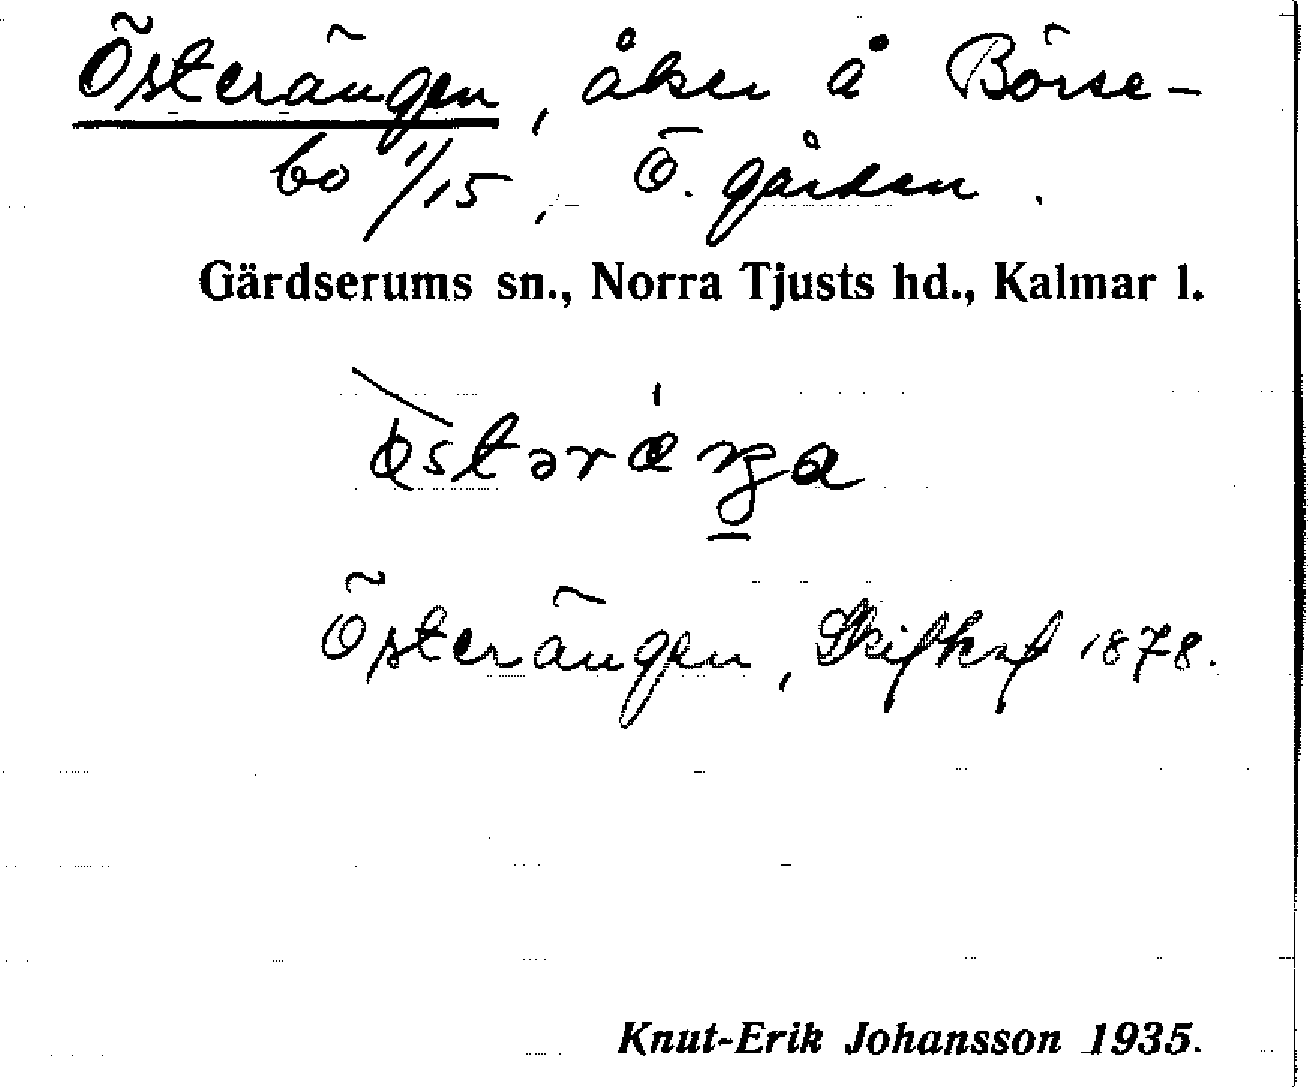 Österängen, åker å Börse-
bo 1/15, Ö. gården.
Gärdserums sn., Norra Tjusts hd., Kalmar l.
Österängen, Skifkaf 1878.
Knut-Erik Johansson 1935.